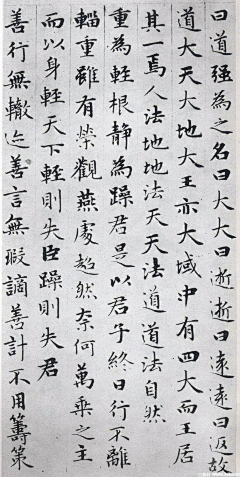 曰道强為之名曰大大曰逝逝曰遠遠曰返故
道大天大地大王亦大域中有四大而王居
其一焉人法地地法天天法道道法自然
重為輕根静為躁君是以君子終日行不離
輜重雖有榮觀燕處超然奈何萬乘之主
而以身輕天下輕則失臣躁則失君
善行無轍迹善言無瑕謫善計不用籌策